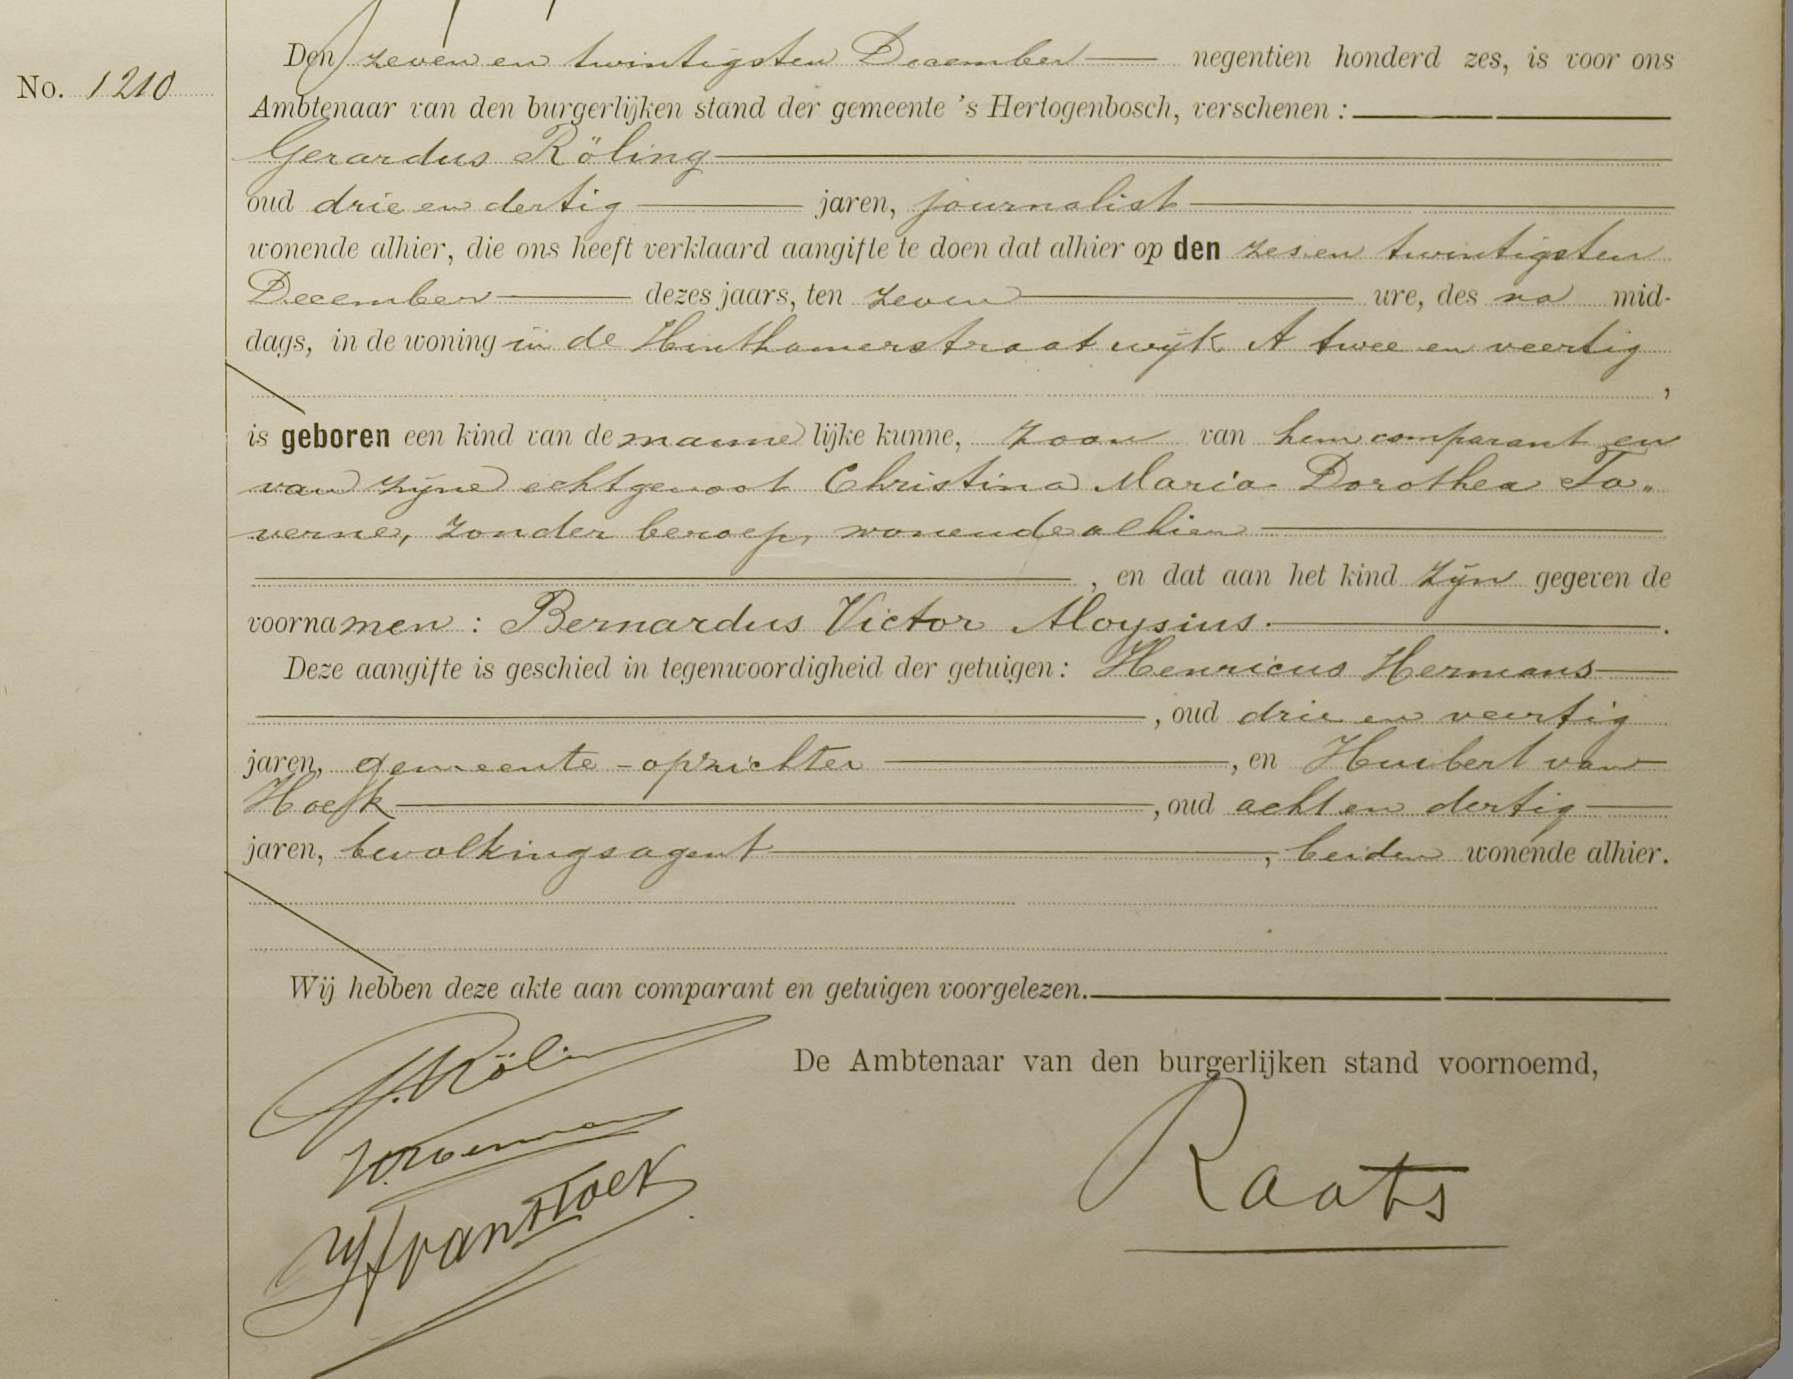 No. 1210
Den zeven en twintigsten December negentien honderd zes, is voor ons
Ambtenaar van den burgerlijken stand der gemeente 's Hertogenbosch, verschenen :
Gerardus Röling
oud drie en dertig jaren, journalist
wonende alhier, die ons heeft verklaard aangifte te doen dat alhier op den zes en twintigsten
December dezes jaars, ten zeven ure, des na mid-
dags, in de woning in de Hinthamerstraat wijk A twee en veertig
,
is geboren een kind van de mannelijke kunne, zoon van hem comparant en
van zijne echtgenoot Christina Maria Dorothea Ta„
verne, zonder beroep, wonende alhier
, en dat aan het kind zijn gegeven de
voornamen : Bernardus Victor Aloysius.
Deze aangifte is geschied in tegenwoordigheid der getuigen: Henricus Hermans
, oud drie en veertig
jaren, gemeente-opzichter, en Huibert van
Hoek, oud acht en dertig
jaren, bevolkingsagent, beiden wonende alhier.
Wij hebben deze akte aan comparant en getuigen voorgelezen.
De Ambtenaar van den burgerlijken stand voornoemd,
Röling
van Hoek
Raats